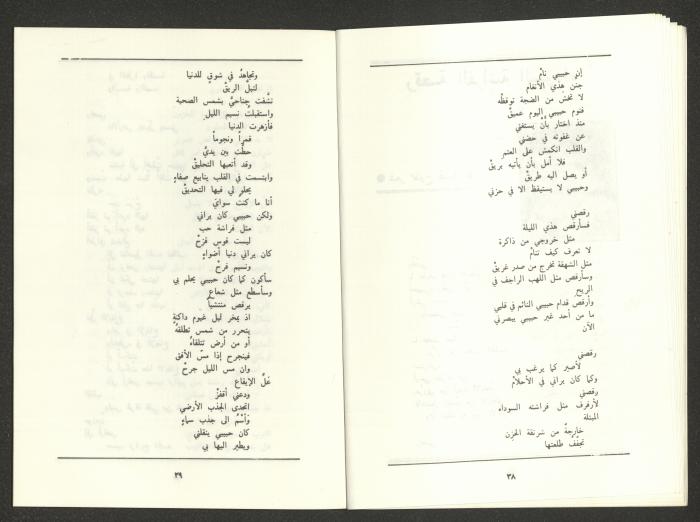 إنْ حبيبي نامْ
جنّن هذي الأنغام
لا تخشَ من الضجة توقظُه
فنوم حبيبي اليوم عميقْ
منذ اختار بأنْ يستغني
عن غفوته في حضني
والقلب انكمش على العتم
فلا أمل بأن يأتيه بريقْ
أو يصل اليه طريقْ
وحبيبي لا يستيقظ الا في حزني
رقصني
فسأرقص هذي الليلة
مثل خروجي من ذاكرة
لا تعرف كيف تنامْ
مثل الشهقة تخرج من صدر غريقْ
وسأرقص مثل اللهب الراجف في
الريح
وأرقص قدام حبيبي النائم في قلبي
ما من أحد غير حبيبي يبصرني
الآن
رقصني
لأصير كما يرغب بي
وكما كان يراني في الأحلامْ
رقصني
لأرفرف مثل فراشته السوداء
المبتلة
خارجةً من شرنقة الحزن
تجفّفُ طلعتها
٣٨
وتجاهدُ في شوقٍ للدنيا
لتبلَّ الريقْ
نشّفت جناحيَّ بشمس الصحبة
واستقبلتُ نسيم الليل
فأزهرت الدنيا
قمراً ونجوماً
حطّت بين يديَّ
وقد أتعبها التحليقْ
وابتسمت في القلب ينابيع صفاءٍ
يحلو لي فيها التحديقْ
أنا ما كنت سوايَ
ولكن حبيبي كان يراني
مثل فراشة حب
لبست قوس قزحْ
كان يراني دنيا أضواءٍ
ونسيم فرحْ
سأكون كما كان حبيبي يحلم بي
وسأسطع مثل شعاع
يرقص منتشياً
اذ يمخر ليل غيوم داكنةٍ
يتحرر من شمس تطلقهُ
أو من أرض تتلقاهُ
فينجرح إذا مسّ الأفق
وان مس الليل جرحْ
عَلِّ الإيقاع
ودعني أقفزْ
اتحدى الجذب الأرضي
وَأسْمُ الى جذب سماءٍ
كان حبيبي ينقلني
ويطير اليها بي
٣٩